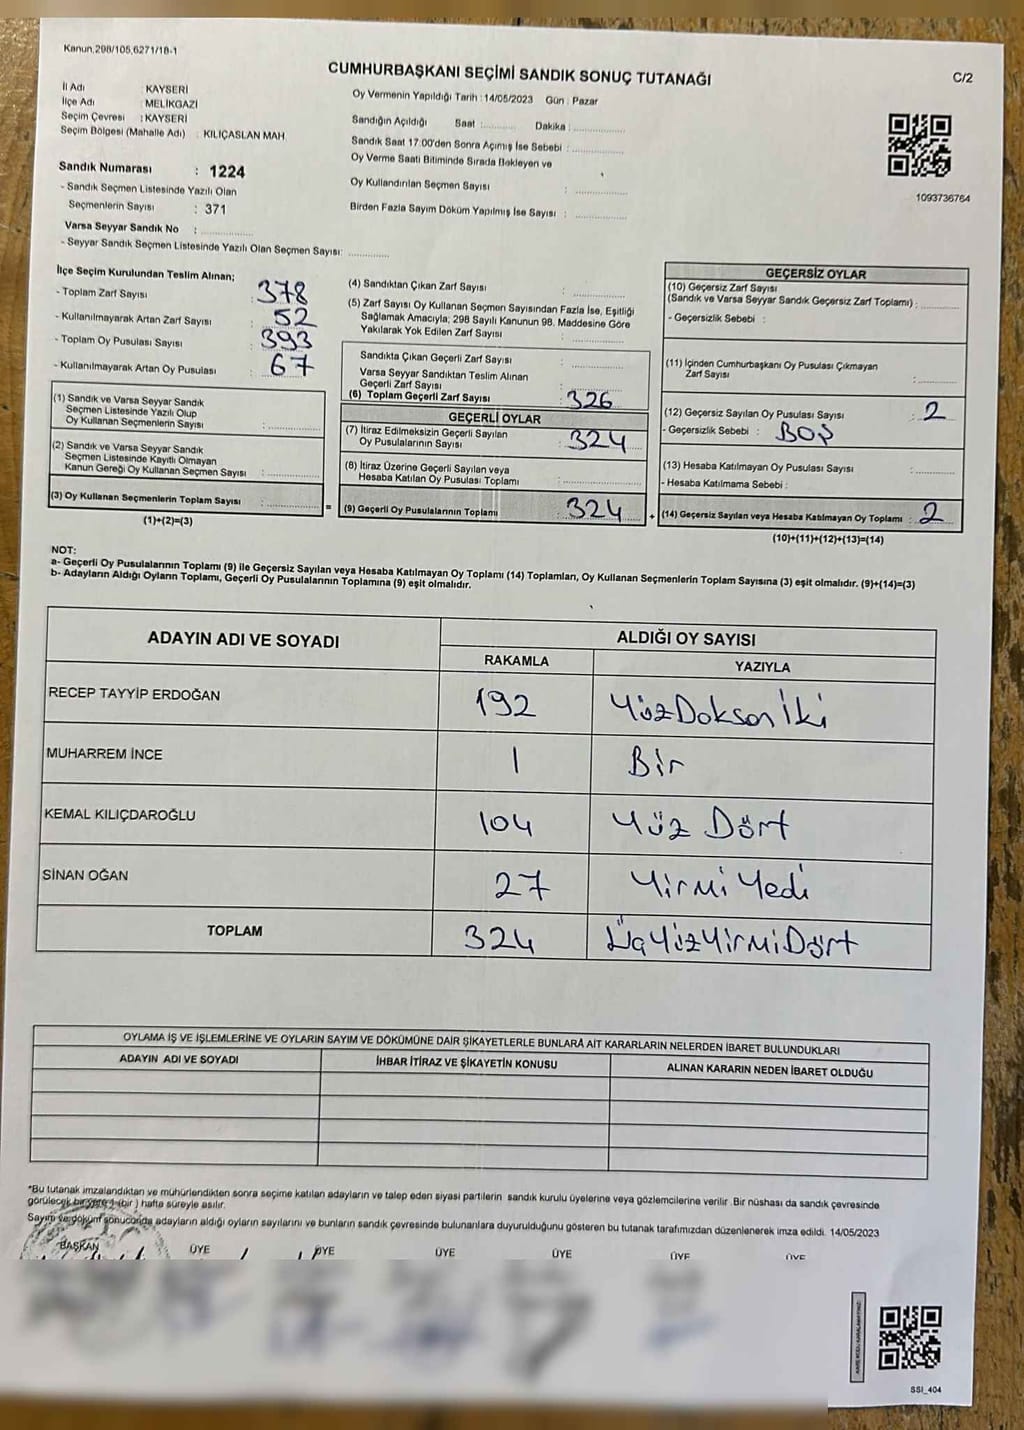 Kanun.298/105,6271/18-1
CUMHURBAŞKANI SEÇİMİ SANDIK SONUÇ TUTANAĞI
C/2
İl Adı : KAYSERİ
İlçe Adı : MELİKGAZİ
Seçim Çevresi : KAYSERİ
Seçim Bölgesi (Mahalle Adı) : KILIÇASLAN MAH
Sandık Numarası : 1224
- Sandık Seçmen Listesinde Yazılı Olan
Seçmenlerin Sayısı : 371
Varsa Seyyar Sandık No :
- Seyyar Sandık Seçmen Listesinde Yazılı Olan Seçmen Sayısı:
Oy Vermenin Yapıldığı Tarih : 14/05/2023 Gün : Pazar
Sandığın Açıldığı Saat : Dakika :
Sandık Saat 17:00'den Sonra Açımış İse Sebebi :
Oy Verme Saati Bitiminde Sırada Bekleyen ve
Oy Kullandırılan Seçmen Sayısı :
Birden Fazla Sayım Döküm Yapılmış İse Sayısı :
1093736764
İlçe Seçim Kurulundan Teslim Alınan;
- Toplam Zarf Sayısı : 378
- Kullanılmayarak Artan Zarf Sayısı : 52
- Toplam Oy Pusulası Sayısı : 393
- Kullanılmayarak Artan Oy Pusulası : 67
(1) Sandık ve Varsa Seyyar Sandık
Seçmen Listesinde Yazılı Olup
Oy Kullanan Seçmenlerin Sayısı :
(2) Sandık ve Varsa Seyyar Sandık
Seçmen Listesinde Kayıtlı Olmayan
Kanun Gereği Oy Kullanan Seçmen Sayısı :
(3) Oy Kullanan Seçmenlerin Toplam Sayısı :
(1)+(2)=(3)
=
(4) Sandıktan Çıkan Zarf Sayısı :
(5) Zarf Sayısı Oy Kullanan Seçmen Sayısından Fazla İse, Eşitliği
Sağlamak Amacıyla; 298 Sayılı Kanunun 98. Maddesine Göre
Yakılarak Yok Edilen Zarf Sayısı :
Sandıkta Çıkan Geçerli Zarf Sayısı :
Varsa Seyyar Sandıktan Teslim Alınan
Geçerli Zarf Sayısı :
(6) Toplam Geçerli Zarf Sayısı : 326
GEÇERLİ OYLAR
(7) İtiraz Edilmeksizin Geçerli Sayılan
Oy Pusulalarının Sayısı : 324
(8) İtiraz Üzerine Geçerli Sayılan veya
Hesaba Katılan Oy Pusulası Toplamı :
(9) Geçerli Oy Pusulalarının Toplamı : 324
+
GEÇERSİZ OYLAR
(10) Geçersiz Zarf Sayısı
(Sandık ve Varsa Seyyar Sandık Geçersiz Zarf Toplamı) :
- Geçersizlik Sebebi :
(11) İçinden Cumhurbaşkanı Oy Pusulası Çıkmayan
Zarf Sayısı :
(12) Geçersiz Sayılan Oy Pusulası Sayısı : 2
- Geçersizlik Sebebi : BOŞ
(13) Hesaba Katılmayan Oy Pusulası Sayısı :
- Hesaba Katılmama Sebebi :
(14) Geçersiz Sayılan veya Hesaba Katılmayan Oy Toplamı : 2
(10)+(11)+(12)+(13)=(14)
NOT:
a- Geçerli Oy Pusulalarının Toplamı (9) ile Geçersiz Sayılan veya Hesaba Katılmayan Oy Toplamı (14) Toplamları, Oy Kullanan Seçmenlerin Toplam Sayısına (3) eşit olmalıdır. (9)+(14)=(3)
b- Adayların Aldığı Oyların Toplamı, Geçerli Oy Pusulalarının Toplamına (9) eşit olmalıdır.
ADAYIN ADI VE SOYADI
ALDIĞI OY SAYISI
RAKAMLA YAZIYLA
RECEP TAYYİP ERDOĞAN 192 Yüz Doksan İki
MUHARREM İNCE 1 Bir
KEMAL KILIÇDAROĞLU 104 Yüz Dört
SİNAN OĞAN 27 Yirmi Yedi
TOPLAM 324 ÜçYüzYirmiDört
OYLAMA İŞ VE İŞLEMLERİNE VE OYLARIN SAYIM VE DÖKÜMÜNE DAİR ŞİKAYETLERLE BUNLARA AİT KARARLARIN NELERDEN İBARET BULUNDUKLARI
ADAYIN ADI VE SOYADI İHBAR İTİRAZ VE ŞİKAYETİN KONUSU ALINAN KARARIN NEDEN İBARET OLDUĞU
*Bu tutanak imzalandıktan ve mühürlendikten sonra seçime katılan adayların ve talep eden siyasi partilerin sandık kurulu üyelerine veya gözlemcilerine verilir. Bir nüshası da sandık çevresinde
görülecek bir yere 1 (bir) hafta süreyle asılır.
Sayım ve döküm sonucunda adayların aldığı oyların sayılarını ve bunların sandık çevresinde bulunanlara duyurulduğunu gösteren bu tutanak tarafımızdan düzenlenerek imza edildi. 14/05/2023
BAŞKAN ÜYE ÜYE ÜYE ÜYE ÜYE ÜYE
SSI_404